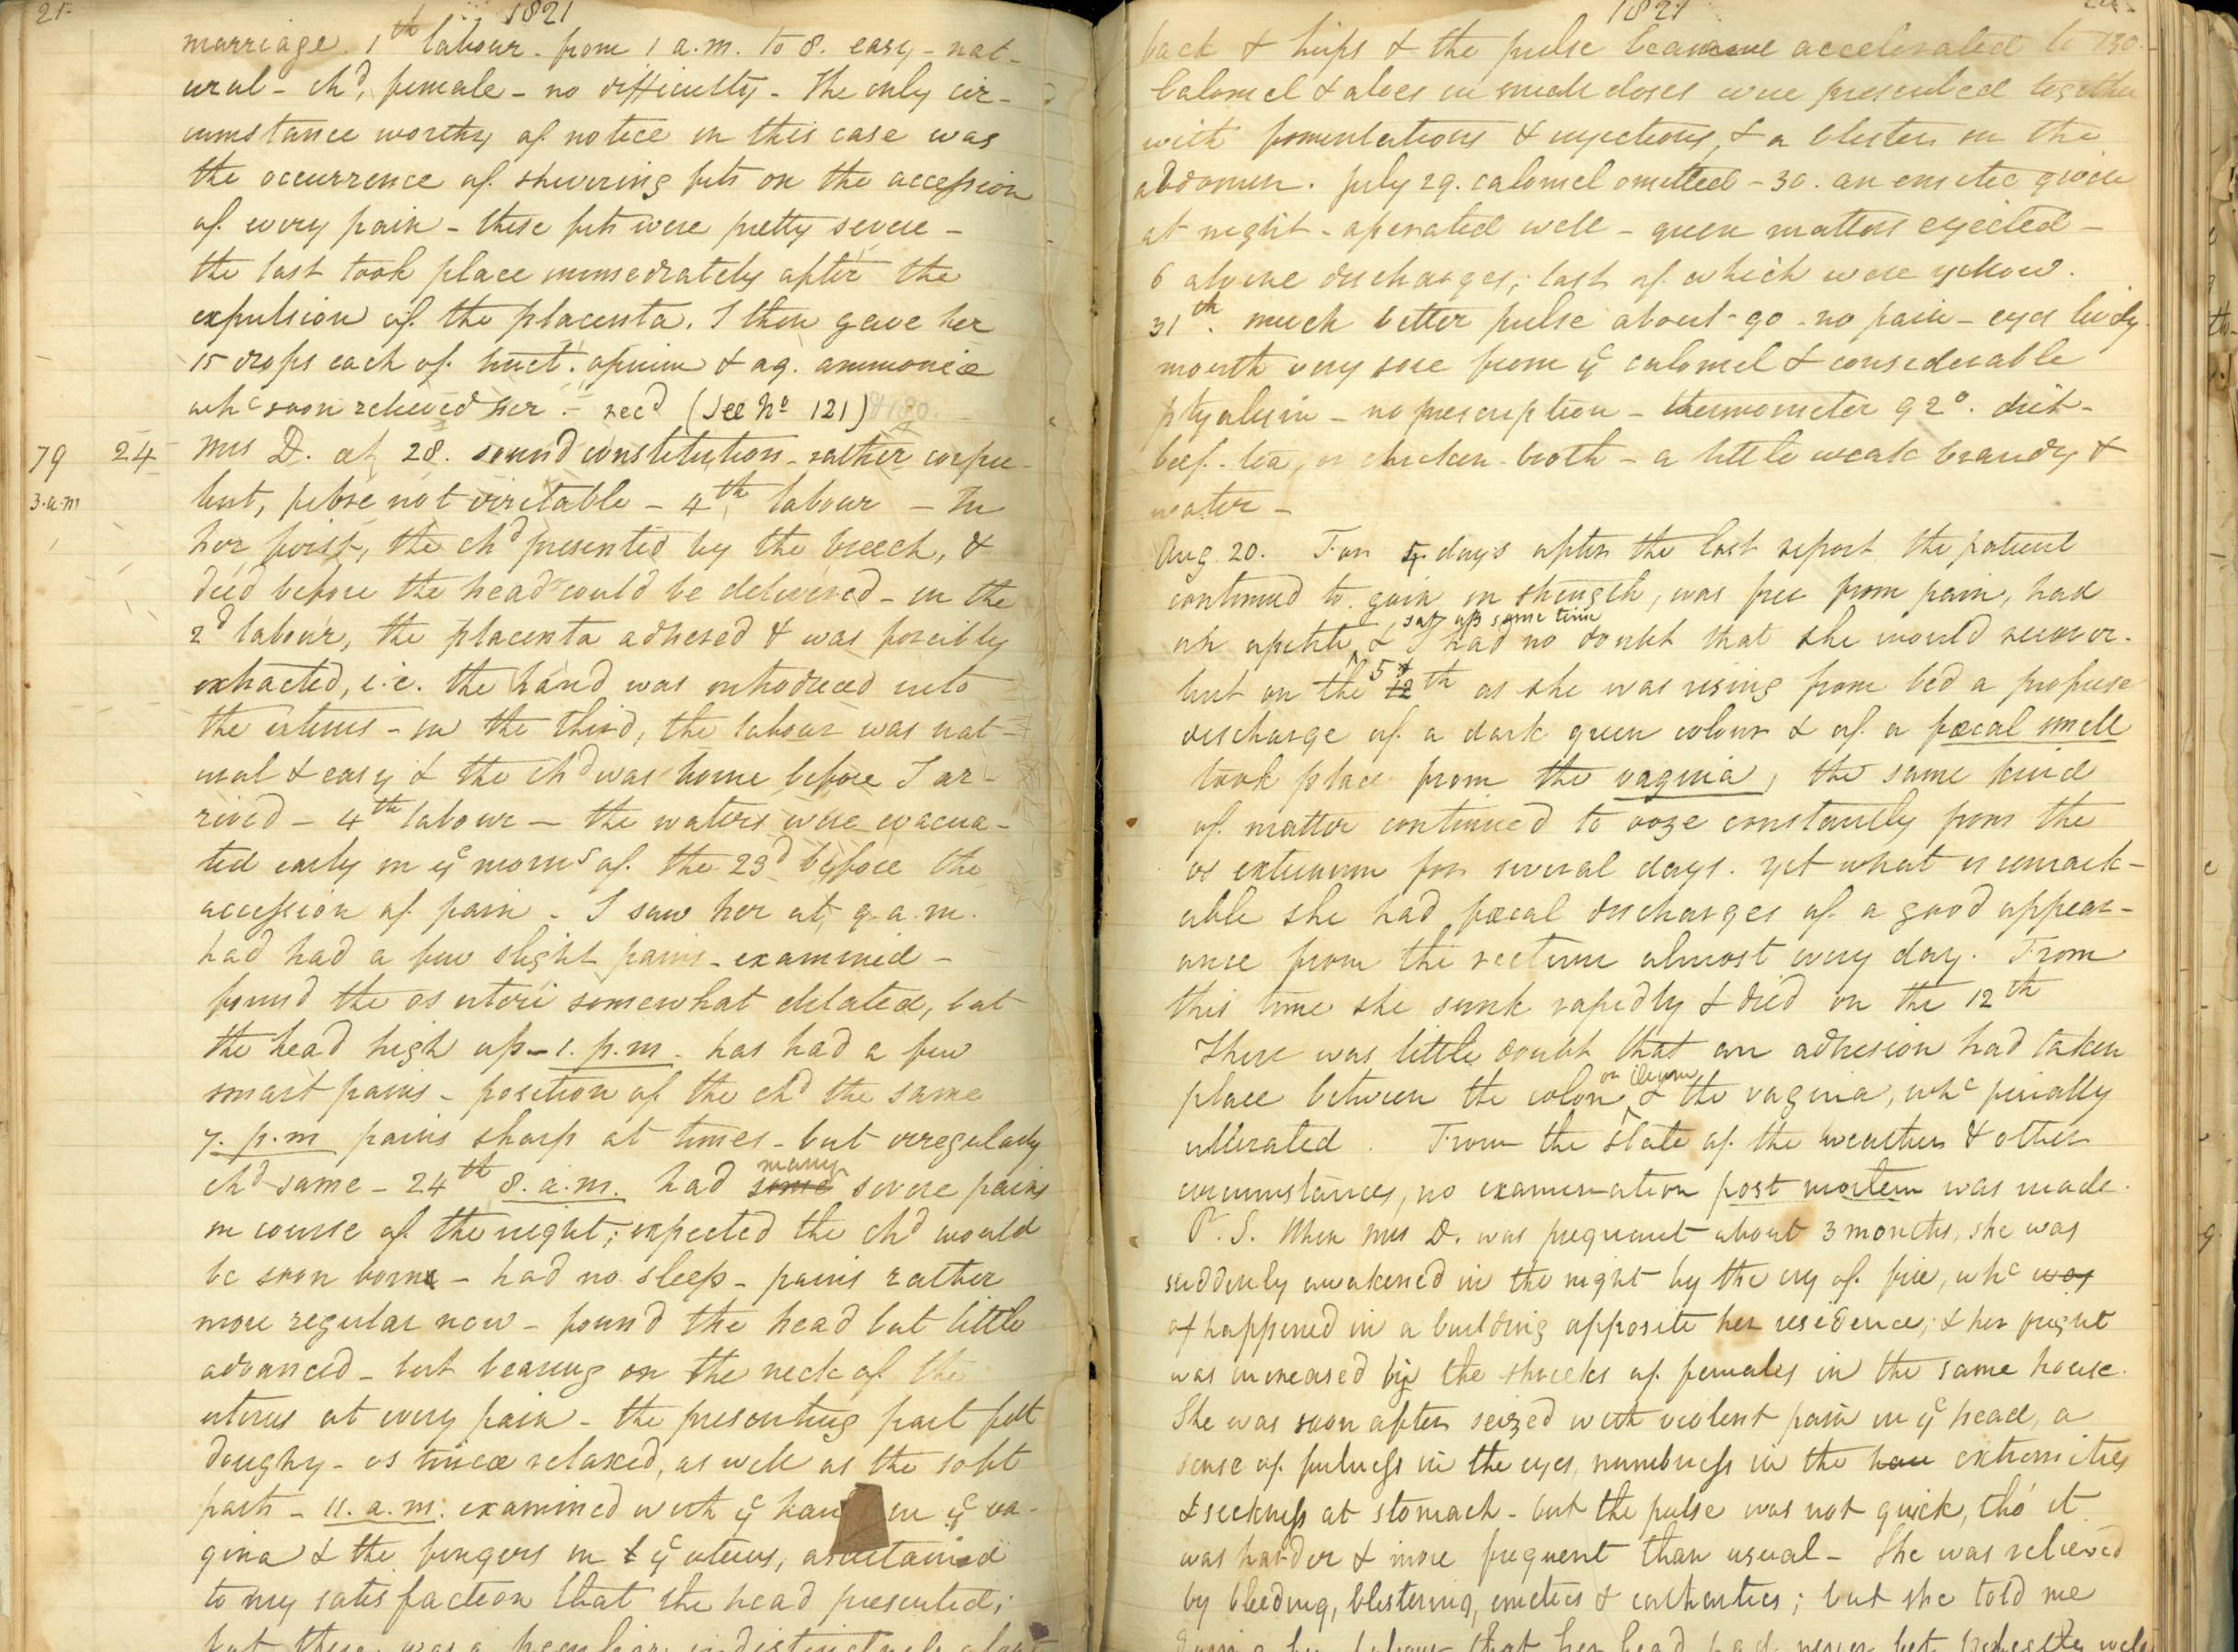 1821
marriage. 1th labour - from 1 a.m. to 8. easy - nat-
ural - chd, female - no difficulty - The only cir-
cumstance worthy of notice in this case was
the occurrence of shivering fits on the accession
of every pain - these fits were pretty severe -
the last took place immediately after the
expulsion of the placenta. I then gave her
15 drops each of tinct. opium & aq. ammoniæ
whc soon relieved her. - recd (See No 121)
79 24 Mrs D. æt 28. sound constitution - rather corpu-
3.a.m lent, fibre not irritable - 4th labour - In
her first, the chd presented by the breech, &
died before the head could be delivered - in the
2d labour, the placenta adhered & was forcibly
extracted, i.e. the hand was introduced into
the uterus - in the third, the labour was nat-
ural & easy & the chd was borne before I ar-
rived - 4th labour - the waters were evacua-
ted early in ye morng of the 23d before the
accession of pain - I saw her at 9 a.m.
had had a few slight pains - examined -
found the os uteri somewhat dilated, but
the head high up - 1. p.m - has had a few
smart pains - position of the chd the same
7. p.m pains sharp at times - but irregularly
chd same - 24th 8. a.m. had some many severe pains
in course of the night; expected the chd would
be soon borne - had no sleep - pains rather
more regular now - found the head but little
advanced - but bearing on the neck of the
uterus at every pain - the presenting part felt
doughy - os tincæ relaxed, as well as the soft
parts - 11. a.m. examined with ye hand in ye va-
gina & the fingers in ye uterus, ascertained
to my satisfaction that the head presented;
but there was a peculiar indistinctness about
1821
back & hips & the pulse became accelerated to 130.
Calomel & aloes in small doses were prescribed together
with fomentations & injections, & a blister on the
abdomen. July 29. calomel omitted - 30. an emetic given
at night - operated well - green matters ejected -
6 alvine discharges; last of which were yellow.
31th. much better pulse about 90 - no pain - eyes lively
mouth very sore from ye calomel & considerable
ptyalism - no prescription - thermometer 92°. diet -
beef-tea, or chicken-broth - a little weak brandy &
water -
Aug. 20. For 4 days after the last report the patient
continued to gain in strength, was free from pain, had
an apetite, sat up some time & I had no doubt that she would recover.
but on the 5th 12th as she was rising from bed a profuse
discharge of a dark green colour & of a fæcal smell
took place from the vagina, the same kind
of matter continued to ooze constantly from the
os externum for several days. yet what is remark-
able she had fœcal discharges of a good appear-
ance from the rectum almost every day. From
this time she sunk rapidly & died on the 12th
There was little doubt that an adhesion had taken
place between the colon or ileum & the vagina, whc finally
ulcerated. From the state of the weather & other
circumstances, no examination post mortem was made.
P.S. When Mrs D. was pregnant about 3 months, she was
suddenly awakened in the night by the cry of fire, whc was
happened in a building opposite her residence; & her fright
was increased by the shrieks of females in the same house.
She was soon after seized with violent pain in ye head, a
sense of fulness in the eyes, numbness in the extremities
& sickness at stomach - but the pulse was not quick, tho' it
was harder & more frequent than usual - She was relieved
by bleeding, blistering, emetics & cathartics; but she told me
during her labour that her head had never felt perfectly well